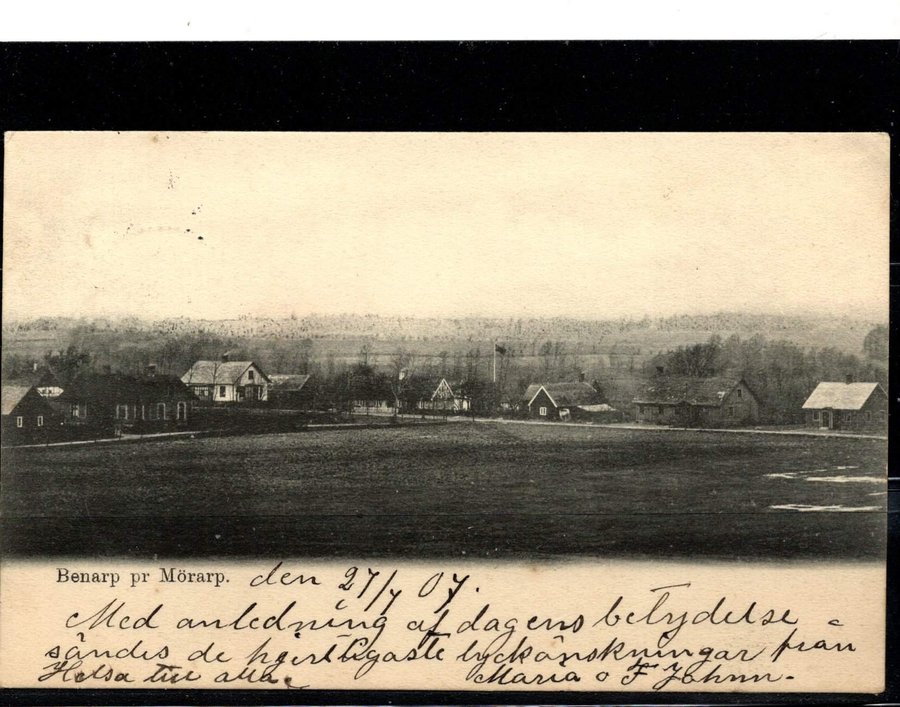 Benarp pr Mörarp. den 27/7 07.
Med anledning af dagens betydelse
sändes de hjertligaste lyckönskningar från
Helsa till alla. Maria o F Johnn.